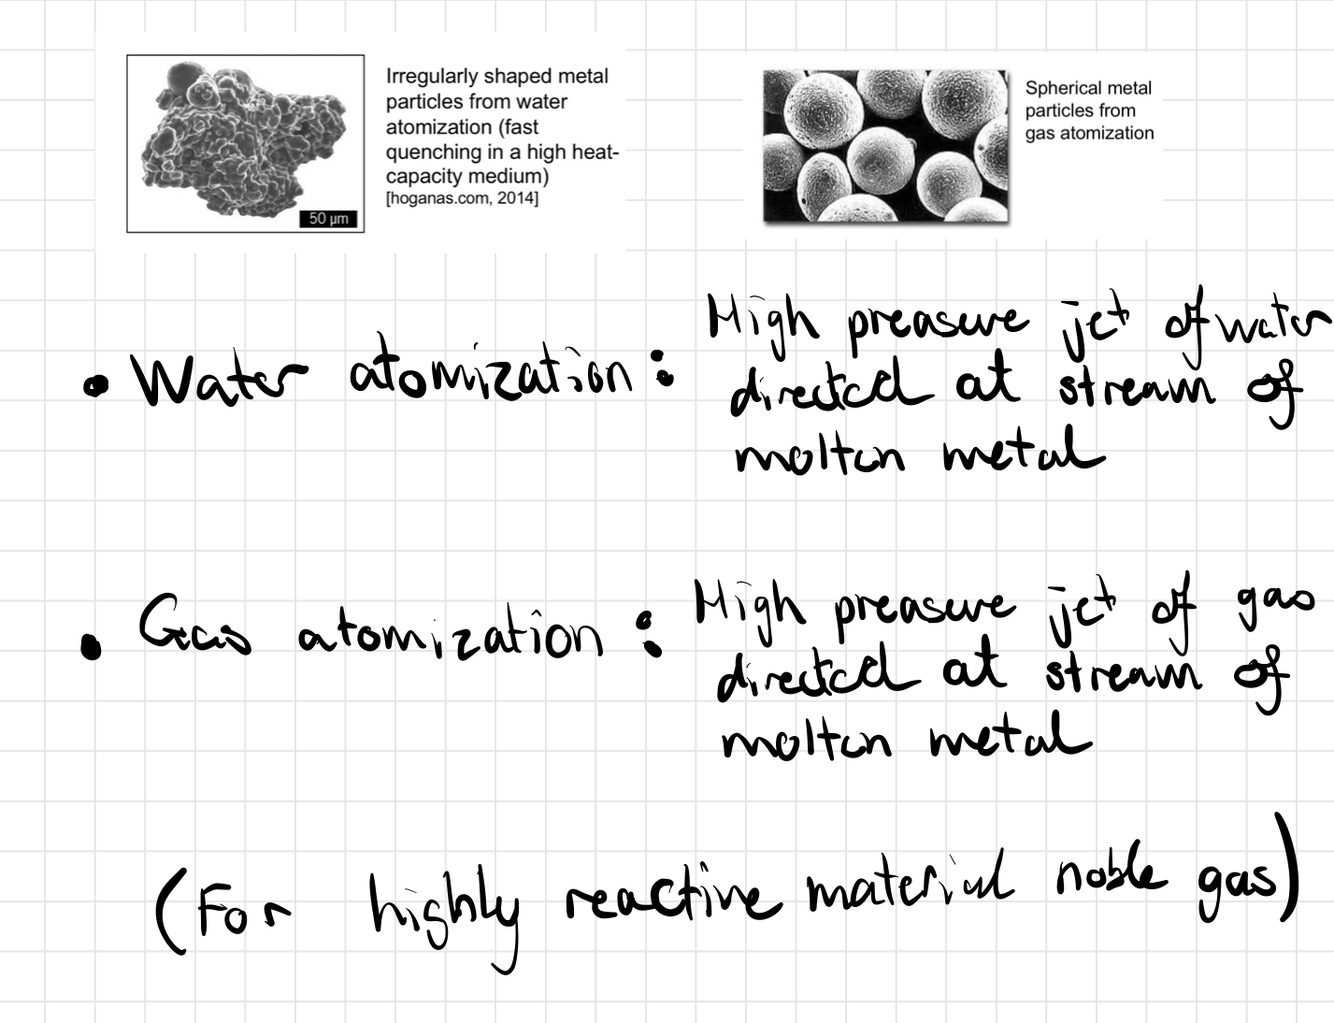 Irregularly shaped metal
particles from water
atomization (fast
quenching in a high heat-
capacity medium)
[hoganas.com, 2014]
50 µm
Spherical metal
particles from
gas atomization
• Water atomization: High preasure jet of water
directed at stream of
molten metal
• Gas atomization: High preasure jet of gas
directed at stream of
molten metal
(For highly reactive material noble gas)